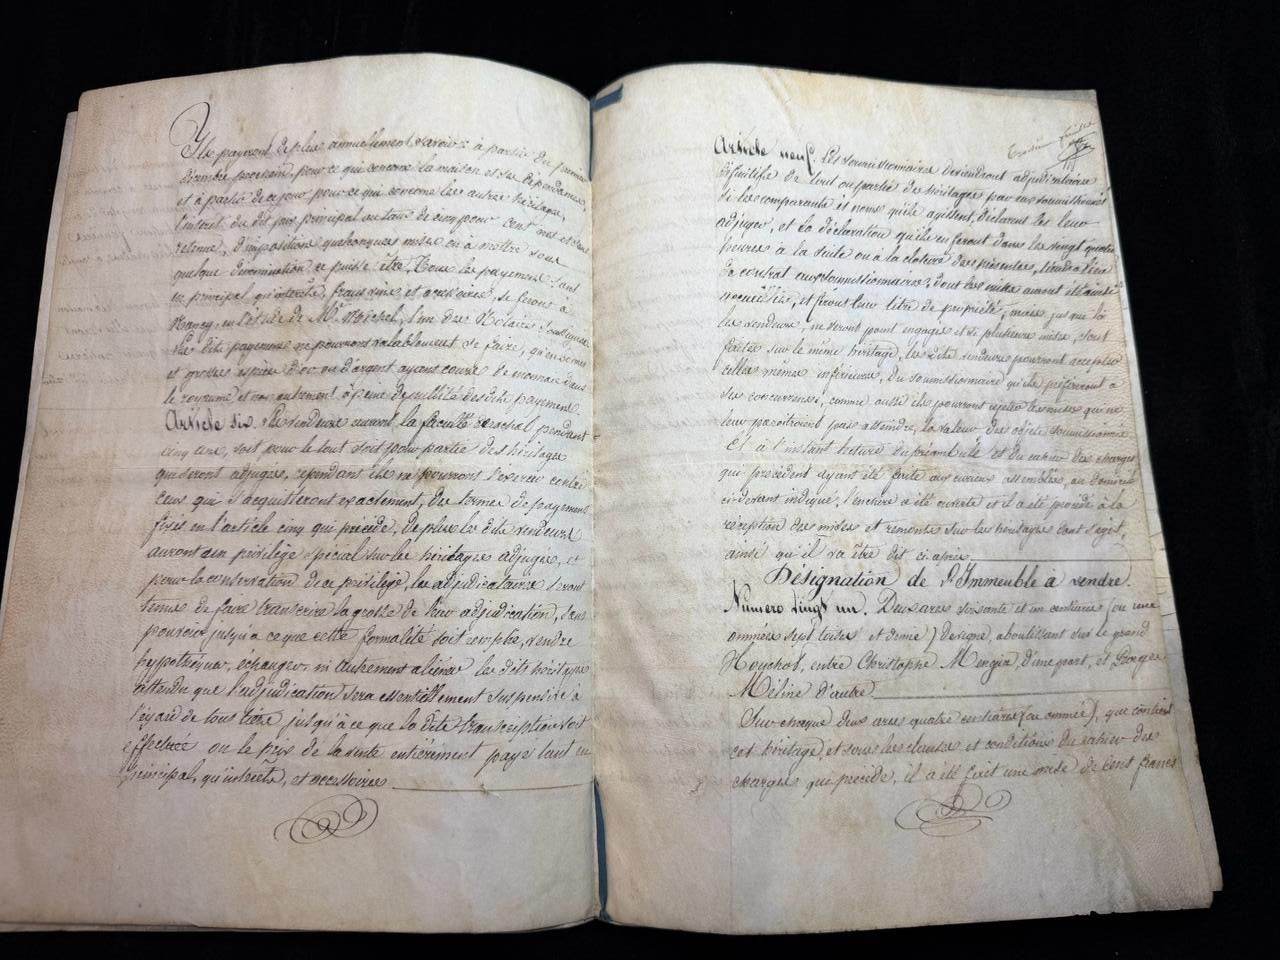 Ils payeront de plus annuellement savoir: à partir du premier
décembre prochain, pour ce qui concerne la maison et ses dépendances,
et à partir de ce jour pour ce qui concerne les autres héritages,
l'intérêt du dit prix principal au taux de cinq pour cent net et sans
retenue, d'impositions quelconques mises ou à mettre sous
quelque dénomination ce puisse être. Tous les payements tant
en principal qu'intérêts, frais vins et accessoires, se feront à
Nancy, en l'étude de Mr. Michel, l'un des Notaires soussignés
Les dits payemens ne pourront valablement se faire, qu'en bonnes
et grosses espèces d'or ou d'argent ayant cours de monnaie dans
le royaume et non autrement, à peine de nullité des dits payemens.
Article six. Les vendeurs auront la faculté de rachat pendant
cinq ans, soit pour le tout soit pour partie des héritages
qui seront adjugés, cependant ils ne pourront l'exercer contre
ceux qui s'acquitteront exactement, des termes de payement
fixés en l'article cinq qui précède, de plus les dits vendeurs
auront un privilège spécial sur les héritages adjugés, et
pour la conservation de ce privilège, les adjudicataires seront
tenus de faire transcrire la grosse de leur adjudication, sans
pouvoir jusqu'à ce que cette formalité soit remplie, vendre
hypothéquer, échanger, ni autrement aliéner les dits héritages
attendu que l'adjudication sera essentiellement suspensive à
l'égard de tous tiers jusqu'à ce que la dite transcription soit
effectuée ou le prix de la vente entièrement payé tant en
principal, qu'intérêts, et accessoires
Article neuf. Les soumissionnaires deviendront adjudicataires
définitifs de tout ou partie des héritages par eux soumissionnés
si les comparants és noms qu'ils agissent, déclarent les leur
adjuger, et la déclaration qu'ils en feront dans les vingt quatre
heures à la suite ou à la cloture des présentes, tiendra lieu
de contrat aux soumissionnaires, dont les mises auront été ainsi
accueillies, et feront leur titre de propriété, mais jusque là
les vendeurs, ne seront point engagés et si plusieurs mises, sont
faites sur le même héritage, les dits vendeurs pourront accepter
celles même inférieures, du soumissionnaire qu'ils préféreront à
ses concurrents, comme aussi ils pourront rejetter les mises qui ne
leur paraitroient pas atteindre, la valeur des objets soumissionnés
Et à l'instant lecture du préambule et du cahier des charges
qui précèdent ayant été faite aux curieux assemblés, au domicile
ci devant indiqué, l'enchère a été ouverte et il a été procédé à la
réception des mises et remonts sur les héritages dont s'agit,
ainsi qu'il va être dit ci après.
Désignation de l'Immeuble à vendre.
Numéro vingt un. Deux ares soixante et un centiares (ou une
ommée sept toises et demie) de vigne, aboutissant sur le grand
Houchot, entre Christophe Mengin, d'une part, et Georges
Méline d'autre
Sur chaque deux ares quatre centiares (ou ommée), que contient
cet héritage et sous les clauses et conditions du cahier des
charges qui précède, il a été fixé une mise de Cent francs